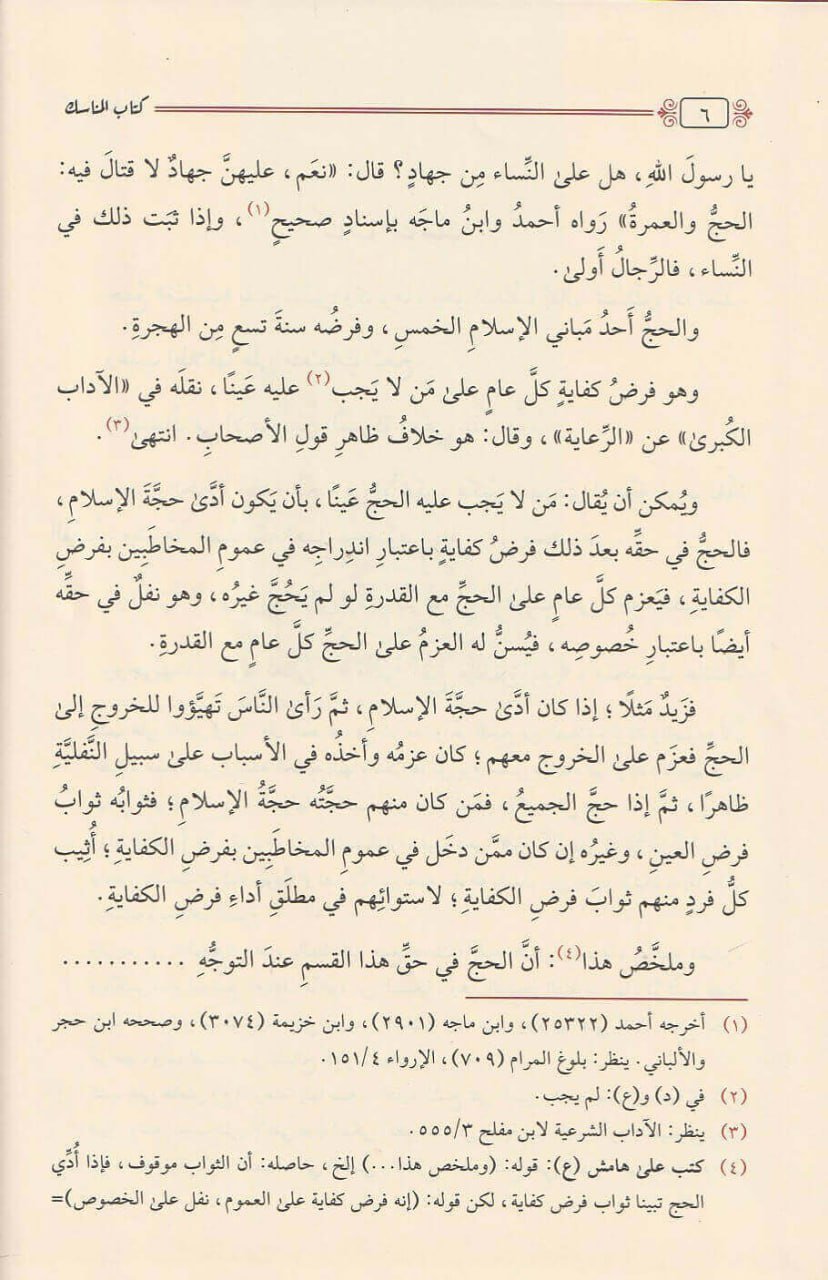 ٦ كتاب المناسك
يا رسولَ اللهِ، هل علىٰ النِّساء مِن جهادٍ؟ قال: «نعَم، عليهنَّ جهادٌ لا قتالَ فيه:
الحجُّ والعمرةُ» رَواه أحمدُ وابنُ ماجَه بإسنادٍ صحيحٍ(١)، وإذا ثبَت ذلك في
النِّساء، فالرِّجالُ أَولىٰ.
والحجُّ أَحدُ مَباني الإسلامِ الخمسِ، وفرضُه سنةَ تسعٍ مِن الهجرةِ.
وهو فرضُ كفايةٍ كلَّ عامٍ علىٰ مَن لا يَجب(٢) عليه عَينًا، نقلَه في «الآداب
الكُبرىٰ» عن «الرِّعاية»، وقال: هو خلافُ ظاهرِ قولِ الأصحابِ. انتهىٰ(٣).
ويُمكن أن يُقال: مَن لا يَجب عليه الحجُّ عَينًا، بأن يَكون أدَّىٰ حجَّةَ الإسلامِ،
فالحجُّ في حقِّه بعدَ ذلك فرضُ كفايةٍ باعتبارِ اندِراجِه في عمومِ المخاطَبِين بفرضِ
الكفايةِ، فيَعزم كلَّ عامٍ علىٰ الحجِّ مع القدرةِ لو لم يَحُجَّ غيرُه، وهو نفلٌ في حقِّه
أيضًا باعتبارِ خُصوصِه، فيُسنُّ له العزمُ علىٰ الحجِّ كلَّ عامٍ مع القدرةِ.
فزَيدٌ مَثلًا؛ إذا كان أدَّىٰ حجَّةَ الإسلامِ، ثمَّ رَأىٰ النَّاسَ تَهيَّؤوا للخروجِ إلىٰ
الحجِّ فعزَم علىٰ الخروجِ معهم؛ كان عزمُه وأخذُه في الأسباب علىٰ سبيلِ النَّفليَّةِ
ظاهرًا، ثمَّ إذا حجَّ الجميعُ، فمَن كان منهم حجَّتُه حجَّةُ الإسلامِ؛ فثوابُه ثوابُ
فرضِ العينِ، وغيرُه إن كان ممَّن دخَل في عمومِ المخاطَبِين بفرضِ الكفايةِ؛ أُثِيب
كلُّ فردٍ منهم ثوابَ فرضِ الكفايةِ؛ لاستوائِهم في مطلَقِ أداءِ فرضِ الكفايةِ.
وملخَّصُ هذا(٤): أنَّ الحجَّ في حقِّ هذا القسمِ عندَ التوجُّهِ ...........
(١) أخرجه أحمد (٢٥٣٢٢)، وابن ماجه (٢٩٠١)، وابن خزيمة (٣٠٧٤)، وصححه ابن حجر
والألباني. ينظر: بلوغ المرام (٧٠٩)، الإرواء ٤/ ١٥١.
(٢) في (د) و(ع): لم يجب.
(٣) ينظر: الآداب الشرعية لابن مفلح ٣/ ٥٥٥.
(٤) كتب علىٰ هامش (ع): قوله: (وملخص هذا...) إلخ، حاصله: أن الثواب موقوف، فإذا أُدِّي
الحج تبينا ثواب فرض كفاية، لكن قوله: (إنه فرض كفاية علىٰ العموم، نفل علىٰ الخصوص)=